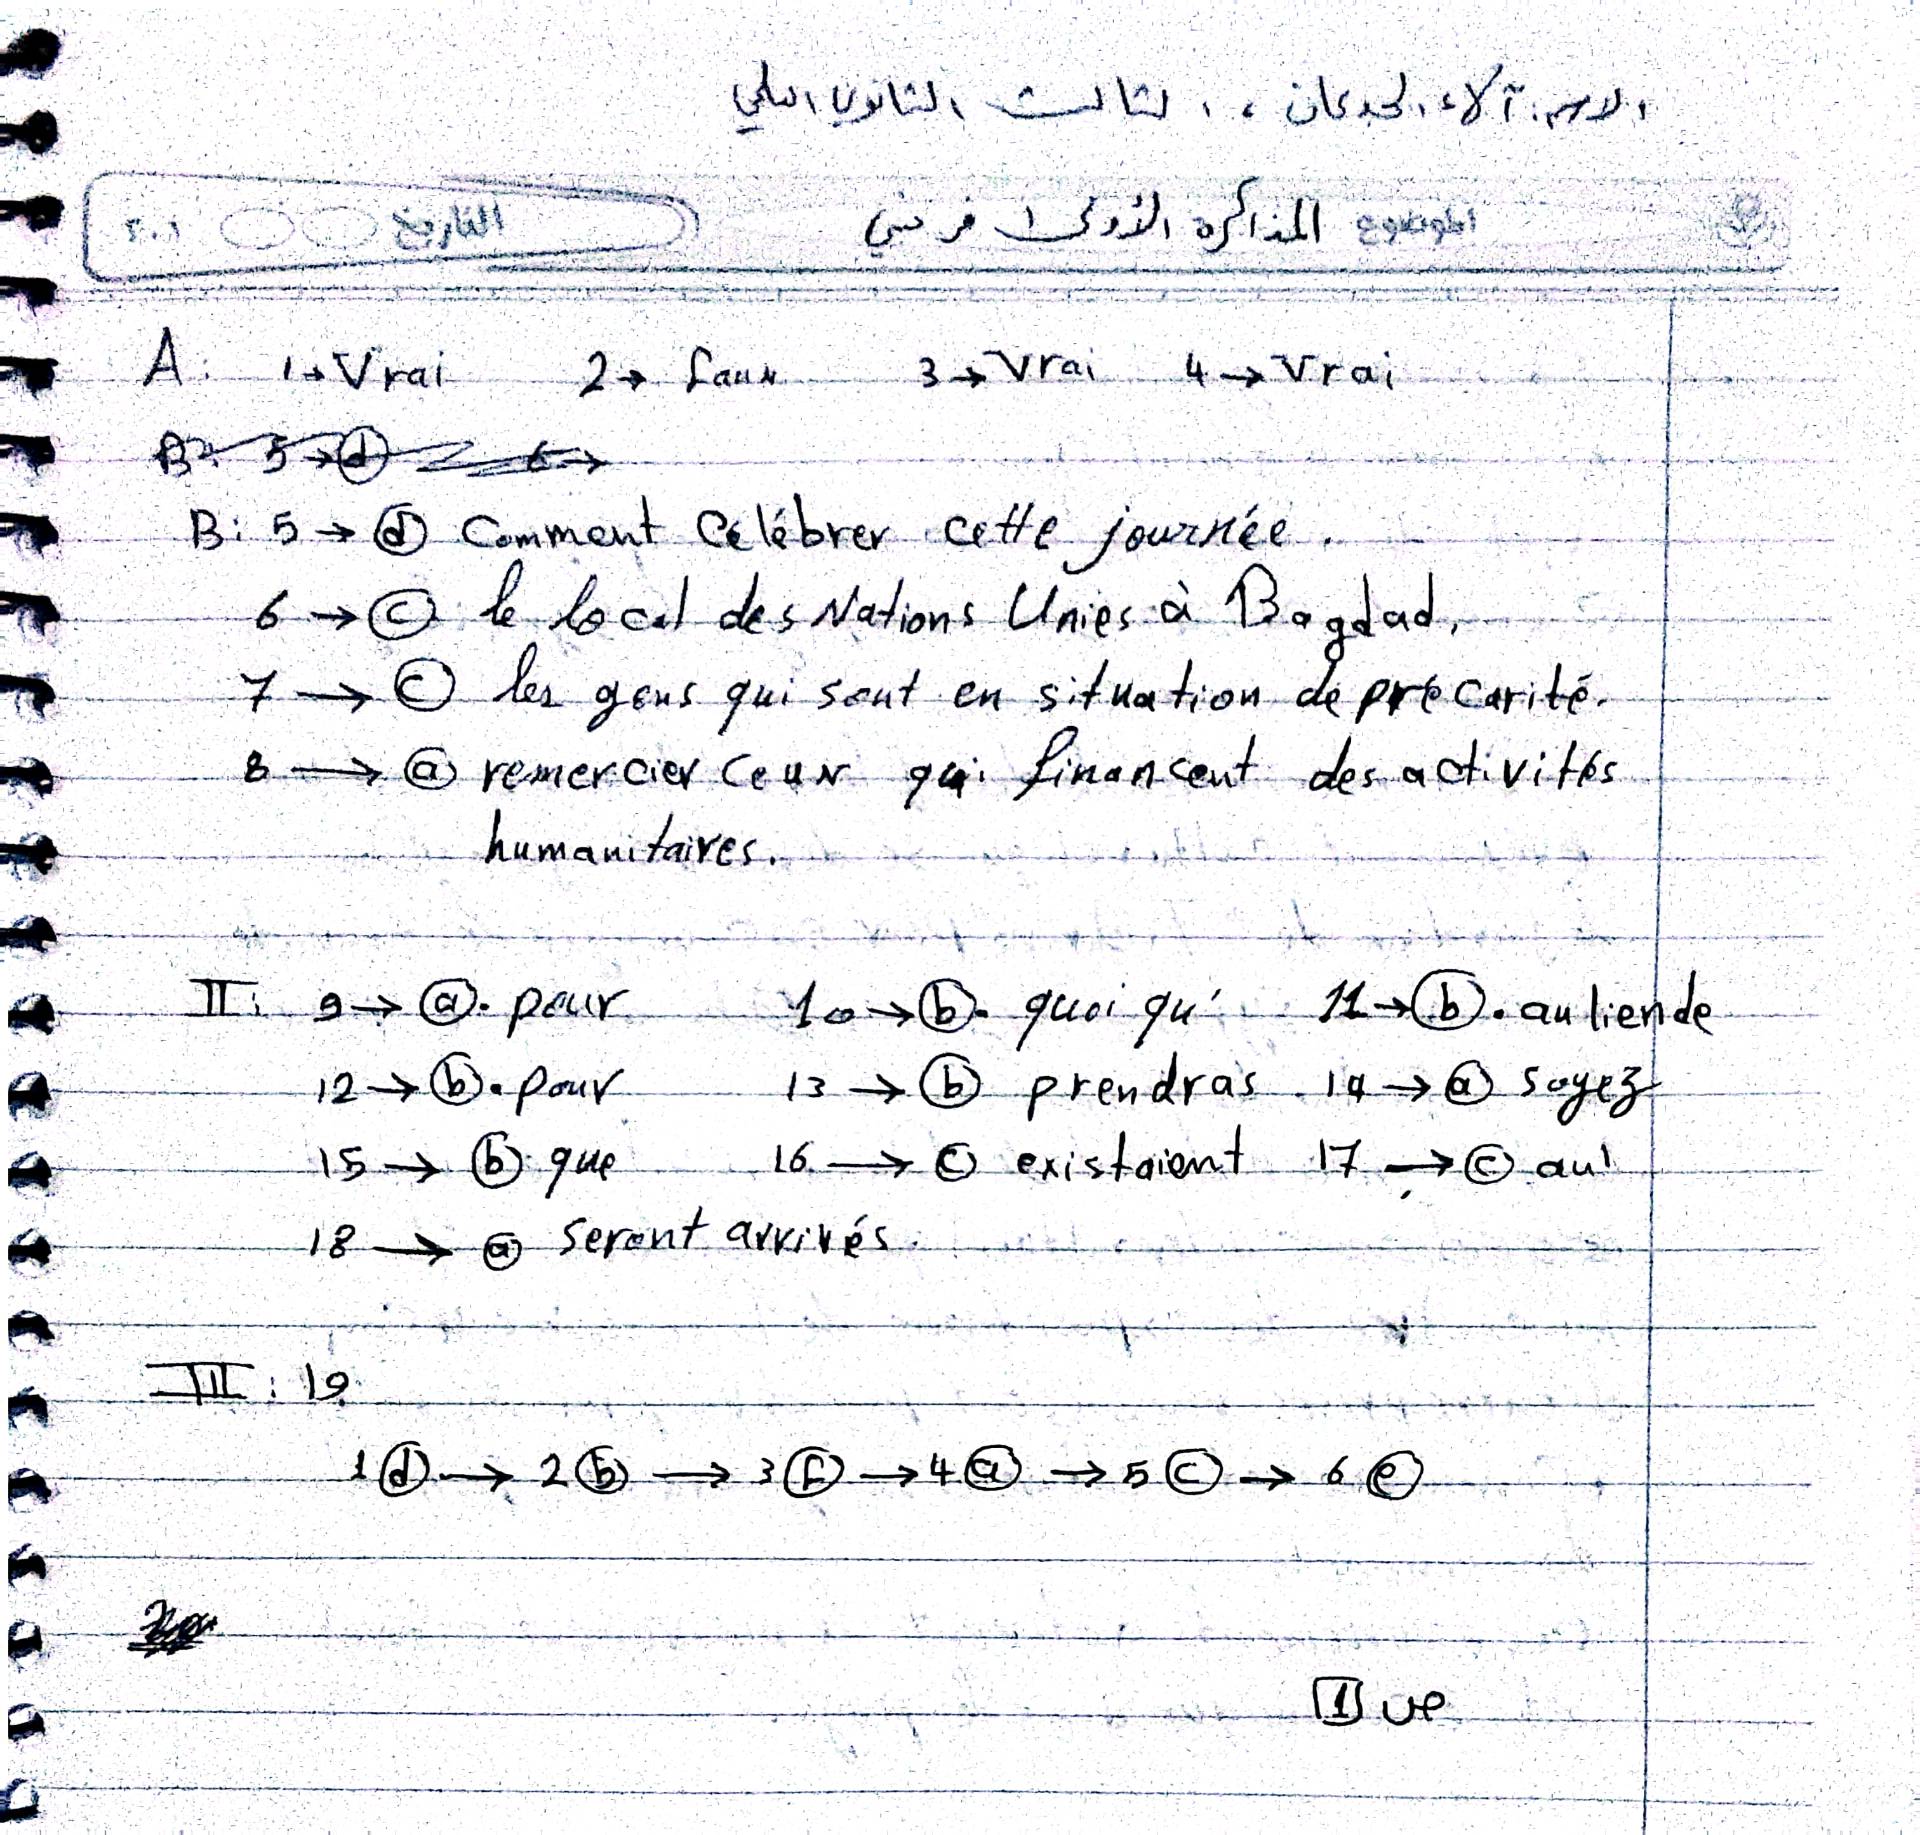 الاسم: آلاء الجدعان ، الثالث الثانوي العلمي
الموضوع المذاكرة الأولى فرنسي التاريخ ٢٠١
A: 1→Vrai 2→ faux 3→ Vrai 4→ Vrai
B: 5→ⓓ 6→
B: 5→ ⓓ Comment Célébrer cette journée.
6→ⓒ le local des Nations Unies à Bagdad.
7→ ⓒ les gens qui sont en situation de précarité.
8→ ⓐ remercier ceux qui financent des activités
humanitaires.
II: 9→ ⓐ. pour 10→ⓑ. quoi qu' 11→ⓑ. au lien de
12→ⓑ. pour 13→ⓑ prendras 14→ⓐ soyez
15→ⓑ que 16→ⓒ existaient 17→ⓒ
18→ⓐ seront arrivés.
III: 19.
1ⓓ→ 2ⓑ→ 3ⓕ→4ⓐ→5ⓒ→ 6ⓔ
1